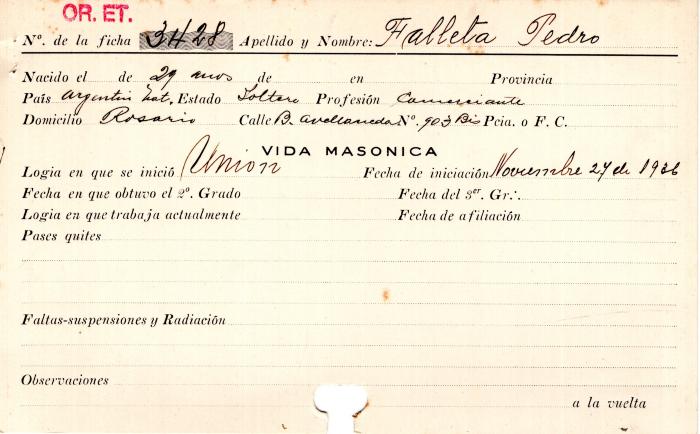 OR. ET.
Nº. de la ficha 3428 Apellido y Nombre: Falleta Pedro
Nacido el de 29 años de en Provincia
País Argentin Nat. Estado Soltero Profesión Comerciante
Domicilio Rosario Calle B. Avellaneda Nº. 903 Bis Pcia. o F. C.
VIDA MASONICA
Logia en que se inició Unión Fecha de iniciación Noviembre 27 de 1926
Fecha en que obtuvo el 2º. Grado Fecha del 3er. Gr∴
Logia en que trabaja actualmente Fecha de afiliación
Pases quites
Faltas-suspensiones y Radiación
Observaciones
a la vuelta